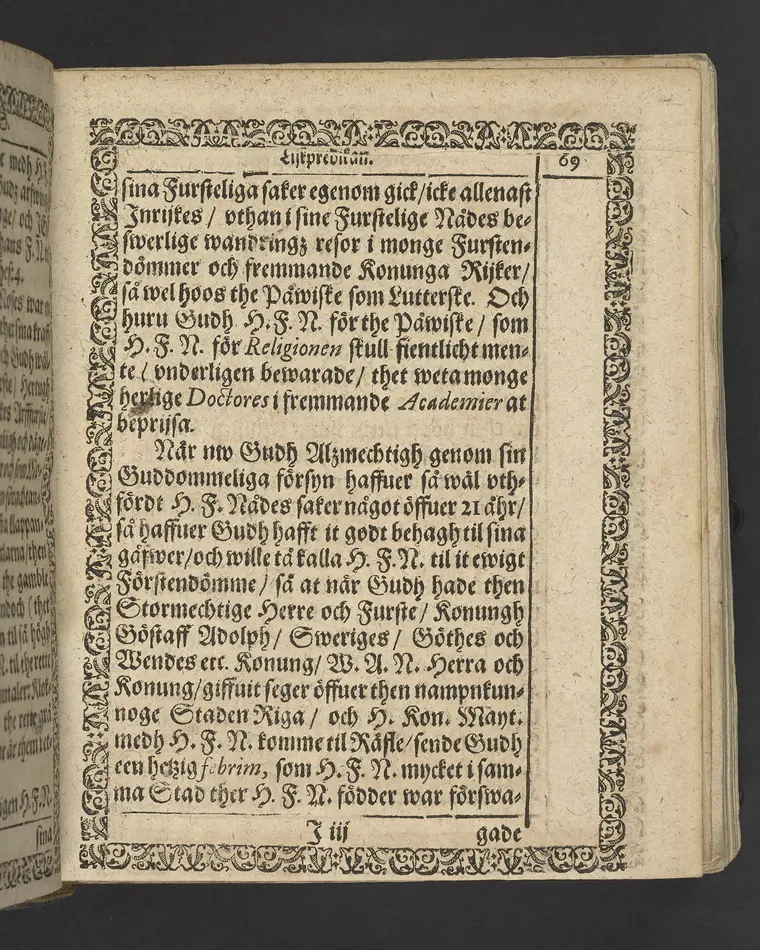 Lijkpredikan.
69
sina Fursteliga saker egenom gick/icke allenast
Inrijkes / vthan i sine Furstelige Nådes be-
swerlige wandringz resor i monge Fursten-
dömmer och fremmande Konunga Rijker/
så wel hoos the Påwiske som Lutterske. Och
huru Gudh H.F.N. för the Påwiske / som
H.F.N. för Religionen skull fientlicht men-
te / vnderligen bewarade / thet weta monge
herlige Doctores i fremmande Academier at
beprijsa.
När nw Gudh Alzmechtigh genom sin
Guddommeliga försyn haffuer så wäl vth-
fördt H.F. Nådes saker något öffuer 21 åhr/
så haffuer Gudh hafft it godt behagh til sina
gåfwer/och wille tå kalla H.F.N. til it ewigt
Förstendömme / så at när Gudh hade then
Stormechtige Herre och Furste / Konungh
Göstaff Adolph / Sweriges / Göthes och
Wendes etc. Konung/ W.A.N. Herra och
Konung/giffuit seger öffuer then nampnkun-
noge Staden Riga / och H. Kon. Mayt.
medh H.F.N. komme til Räfle/sende Gudh
een hetzig febrim, som H.F.N. mycket i sam-
ma Stad ther H.F.N. födder war förswa-
J iij
gade
medh
ans F.
Moses war
Hertugh
the gamble
til så högh
the rette
igen H.F.N.
sina